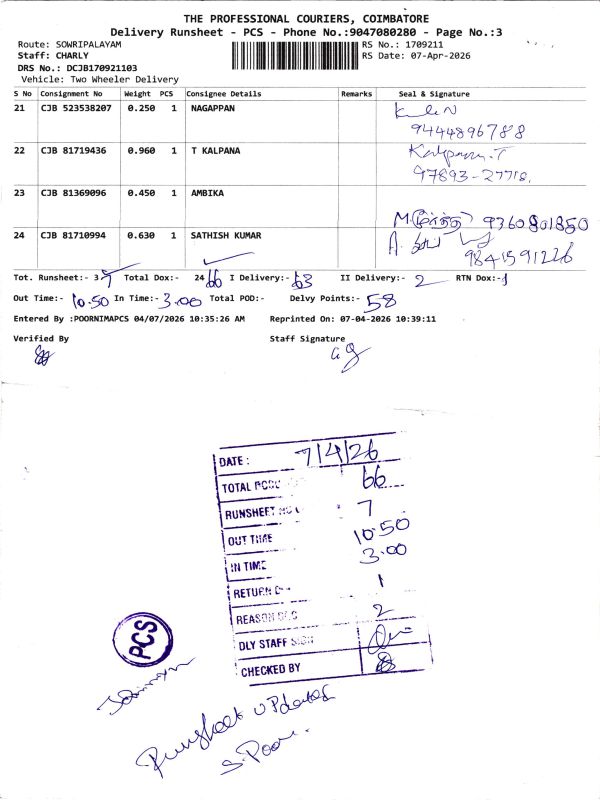 THE PROFESSIONAL COURIERS, COIMBATORE
Delivery Runsheet - PCS - Phone No.:9047080280 - Page No.:3
Route: SOWRIPALAYAM RS No.: 1709211
Staff: CHARLY RS Date: 07-Apr-2026
DRS No.: DCJB170921103
Vehicle: Two Wheeler Delivery
S No Consignment No Weight PCS Consignee Details Remarks Seal & Signature
21 CJB 523538207 0.250 1 NAGAPPAN
9444896788
22 CJB 81719436 0.960 1 T KALPANA Kalpana.T
97893-27718.
23 CJB 81369096 0.450 1 AMBIKA
M. மூர்த்தி 9360801850
24 CJB 81710994 0.630 1 SATHISH KUMAR
9841591226
Tot. Runsheet:- 3 7 Total Dox:- 24 66 I Delivery:- 63 II Delivery:- 2 RTN Dox:- 1
Out Time:- 10.50 In Time:- 3.00 Total POD:- Delvy Points:- 58
Entered By :POORNIMAPCS 04/07/2026 10:35:26 AM Reprinted On: 07-04-2026 10:39:11
Verified By Staff Signature
DATE : 7/4/26
TOTAL 66
RUNSHEET : 7
OUT TIME 10.50
IN TIME 3.00
RETURN 1
REASON 2
DLY STAFF SIGN
CHECKED BY
PCS
Runsheet Updated
S. Poor